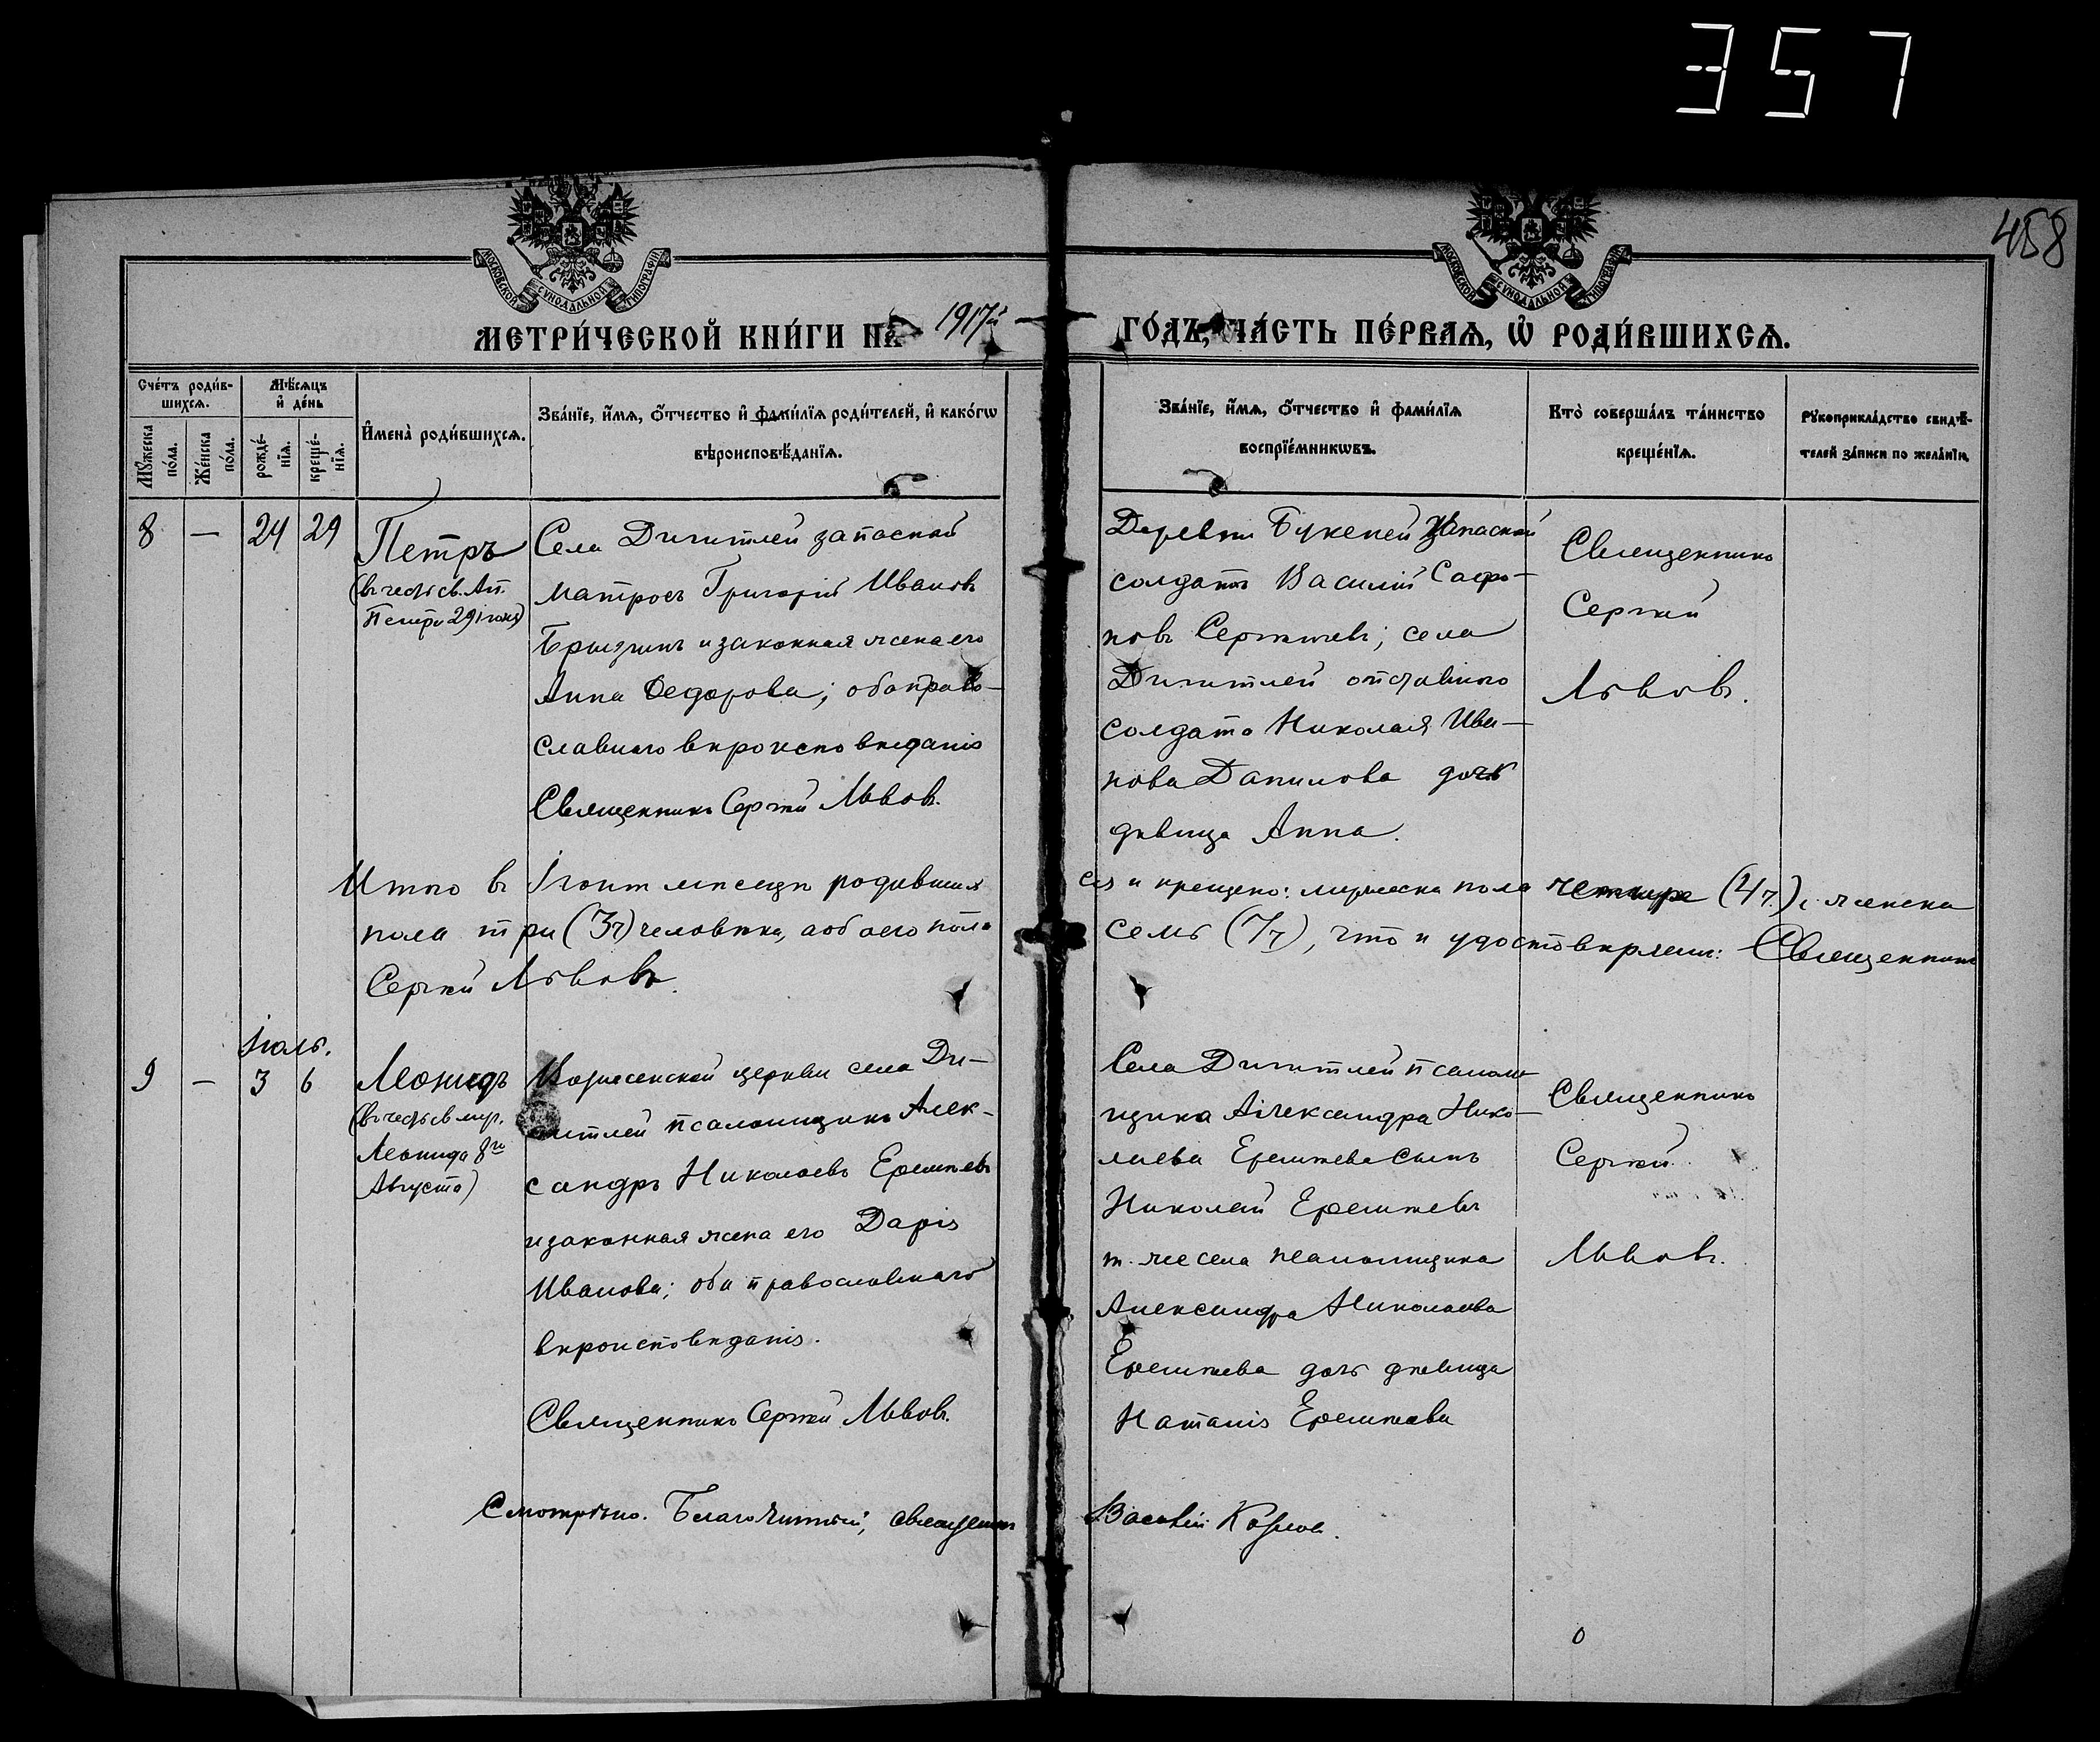 357
458
МОСКОВСКОЙ СѴНОДАЛЬНОЙ ТИПОГРАФІИ
МОСКОВСКОЙ СѴНОДАЛЬНОЙ ТИПОГРАФІИ
МЕТРИ́ЧЕСКОЙ КНИ́ГИ НА 1917й ГО́ДЪ, ЧА́СТЬ ПЕ́РВАѦ, Ѡ РОДИ́ВШИХСѦ.
Сче́тъ роди́в-
шихсѧ.
Мꙋ́жеска по́ла.
Же́нска по́ла.
Мѣ́сѧцъ
и҆ де́нь
рожде́-
нїѧ.
креще́-
нїѧ.
И҆мена̀ роди́вшихсѧ.
Зва́нїе, и҆́мѧ, ѻ҆́тчество и҆ фами́лїѧ роди́телей, и҆ како́гѡ
вѣроисповѣ́данїѧ.
Зва́нїе, и҆́мѧ, ѻ҆́тчество и҆ фами́лїѧ
воспрїе́мникѡвъ.
Кто̀ соверша́лъ та́инство
креще́нїѧ.
Рꙋкоприкла́дство свидѣ́-
телей за́писи по жела́нїю.
8 — 24 29
Петръ
(въ честь св. Ап.
Петра 29 іюня)
Села Дигитлей запасной
матросъ Григорій Ивановъ
Брызгинъ и законная жена его
Анна Ѳедорова; оба право-
славнаго вѣроисповѣданія
Священникъ Сергѣй Львовъ.
Деревни Букеней запасной
солдатъ Василій Сафро-
новъ Сергѣевъ; села
Дигитлей отставного
солдата Николая Ива-
нова Данилова дочь
дѣвица Анна.
Священникъ
Сергѣй
Львовъ.
Итого въ Іюнѣ мѣсяцѣ родивших
ся и крещено: мужеска пола четыре (4ч), женска
пола три (3ч) человѣка, а обоего пола
семь (7ч), что и удостовѣряемъ: Священникъ
Сергѣй Львовъ.
Іюль.
9 — 3 6
Леонидъ
(въ честь св муч.
Леонида 8го
Августа)
Вознесенской церкви села Ди-
гитлей псаломщикъ Алек-
сандръ Николаевъ Еремѣевъ
и законная жена его Дарія
Иванова; оба православнаго
вѣроисповѣданія.
Священникъ Сергѣй Львовъ.
Села Дигитлей псалом-
щика Александра Нико-
лаева Еремѣева сынъ
Николай Еремѣевъ
т. же села псаломщика
Александра Николаева
Еремѣева дочь дѣвица
Наталія Еремѣева
Священникъ
Сергѣй
Львовъ.
Смотрѣно. Благочинный, священникъ Василій